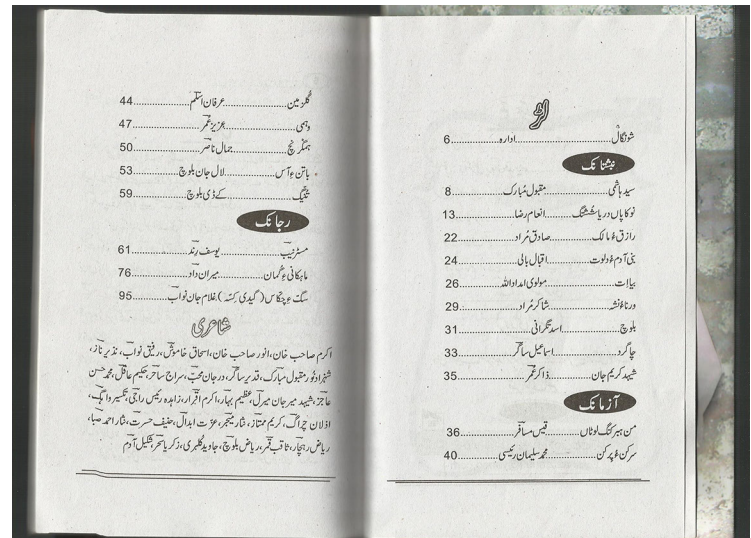 لڑ
شونگال............ادارہ............6
نبشتانک
سید ہاشمی............مقبول مُبارک............8
نوکاپاں دریا شُشتگ............انعام رضا............13
رازق ءُ مالک............صادق مُراد............22
بنی آدم ءُ دولت............اقبال بالی............24
بیاات............مولوی امداد اللہ............26
ورنا ءُ نشہ............شاکر مُراد............29
بلوچ............اسد نگرانی............31
چاگرد............اسماعیل ساگر............33
شہید کریم جان............ذاکر عُمر............35
آزمانک
من ہبر کنگ لوٹاں............قیس مسافر............36
سرکن ءُ پرکن............محمد سلیمان رئیسی............40
گُلزمین............عرفان اسلم............44
وہمی............عزیز عُمر............47
ہنگر ئچ............جمال ناصر............50
باتن ءِ آس............لال جان بلوچ............53
تنگیگ............کے ڈی بلوچ............59
رجانک
مسٹر نیب............یوسف رند............61
ماہکانی ءِ گمان............میران داد............76
سگ ءِ چنگاس (گیدی کسّہ) غلام جان نواب............95
شاعری
اکرم صاحب خان، انور صاحب خان، اسحاق خاموش، رفیق نواب، نذیر ناز،
شہزاد نور مقبول مبارک، قدیر ساگر، درجان محبّ، سراج ساحر، حکیم عاقل، محمد حسن
عاجز، شہید میر جان میرل، عظیم بہار، اکرم اقرار، زاہدہ رئیس راجی، تفسیر واہگ،
اذلان چراگ، کریم ممتاز، نثار میتجر، عزت ابدال، حنیف حسرت، نثار احمد صبا،
ریاض رہچار، ثاقب قمر، ریاض بلوچ، جاوید گلبری، زکریا سحر، شکیل آدم